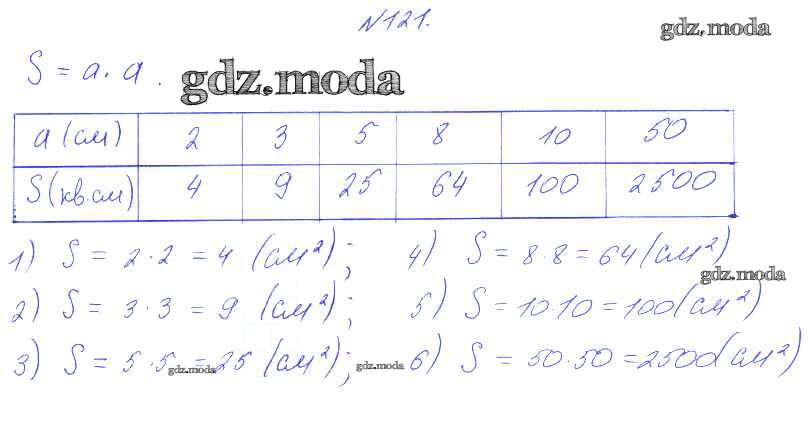 №121.
gdz.moda
S = a · a.
gdz.moda
a (см) 2 3 5 8 10 50
S (кв.см) 4 9 25 64 100 2500
1) S = 2 · 2 = 4 (см²); 4) S = 8 · 8 = 64 (см²)
gdz.moda
2) S = 3 · 3 = 9 (см²); 5) S = 10 · 10 = 100 (см²)
3) S = 5 · 5 = 25 (см²); 6) S = 50 · 50 = 2500 (см²)
gdz.moda gdz.moda